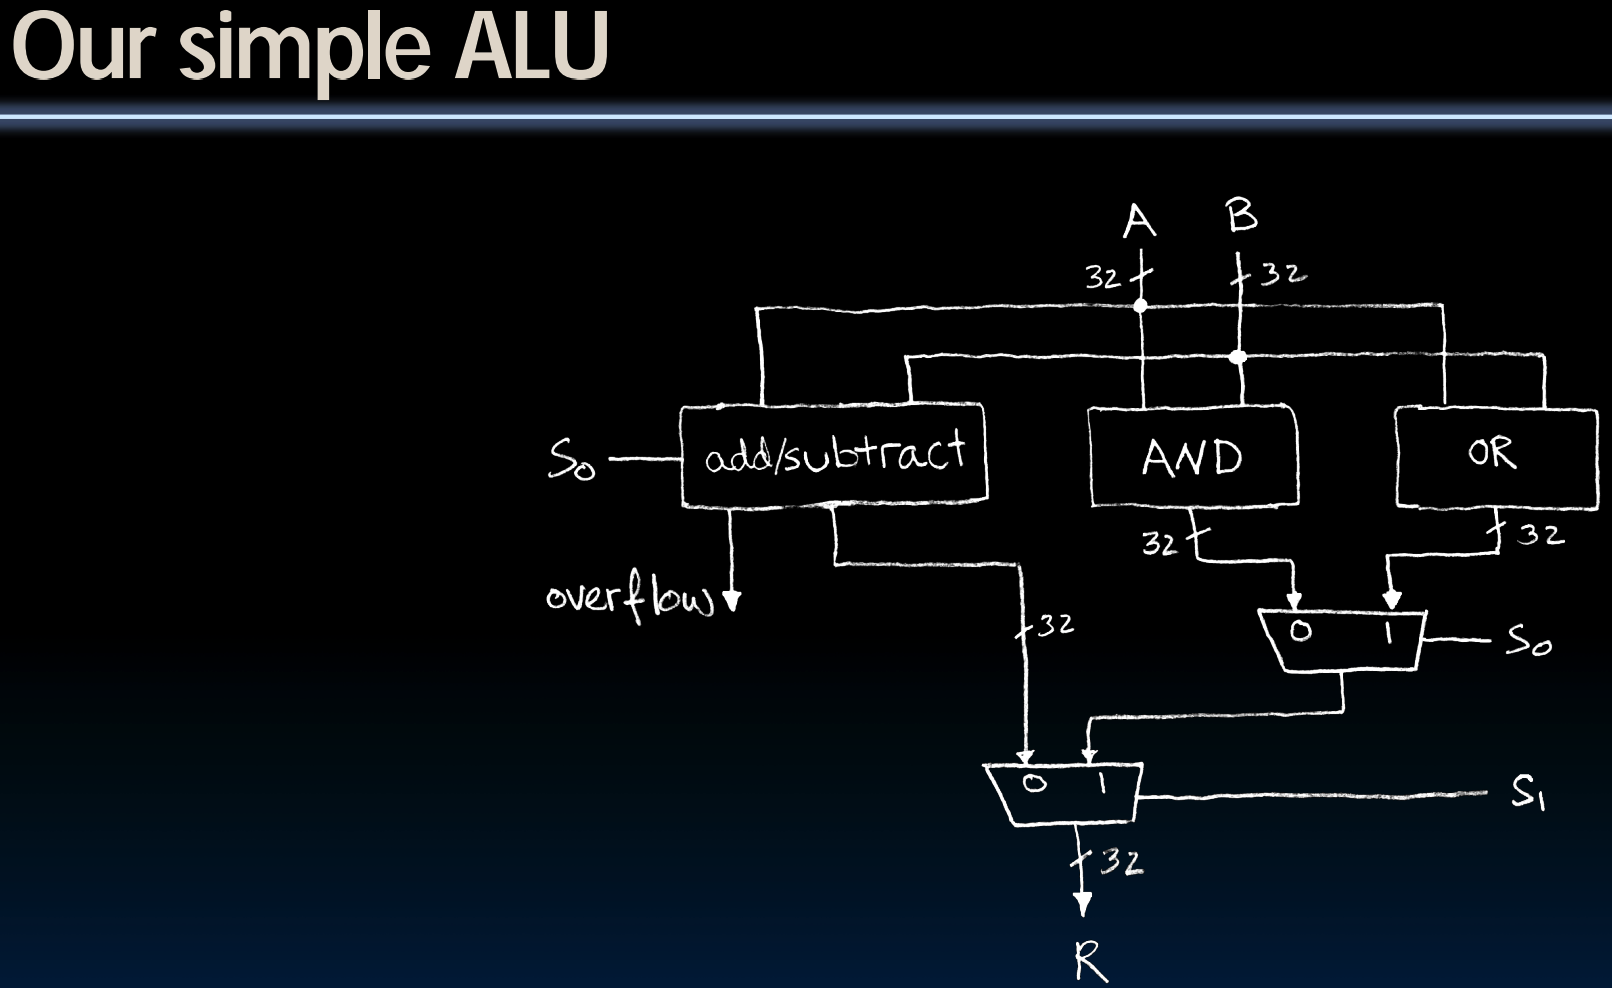 Our simple ALU
A B
32 32
S0 add/subtract AND OR
32 32
overflow
32
0 1 S0
0 1 S1
32
R